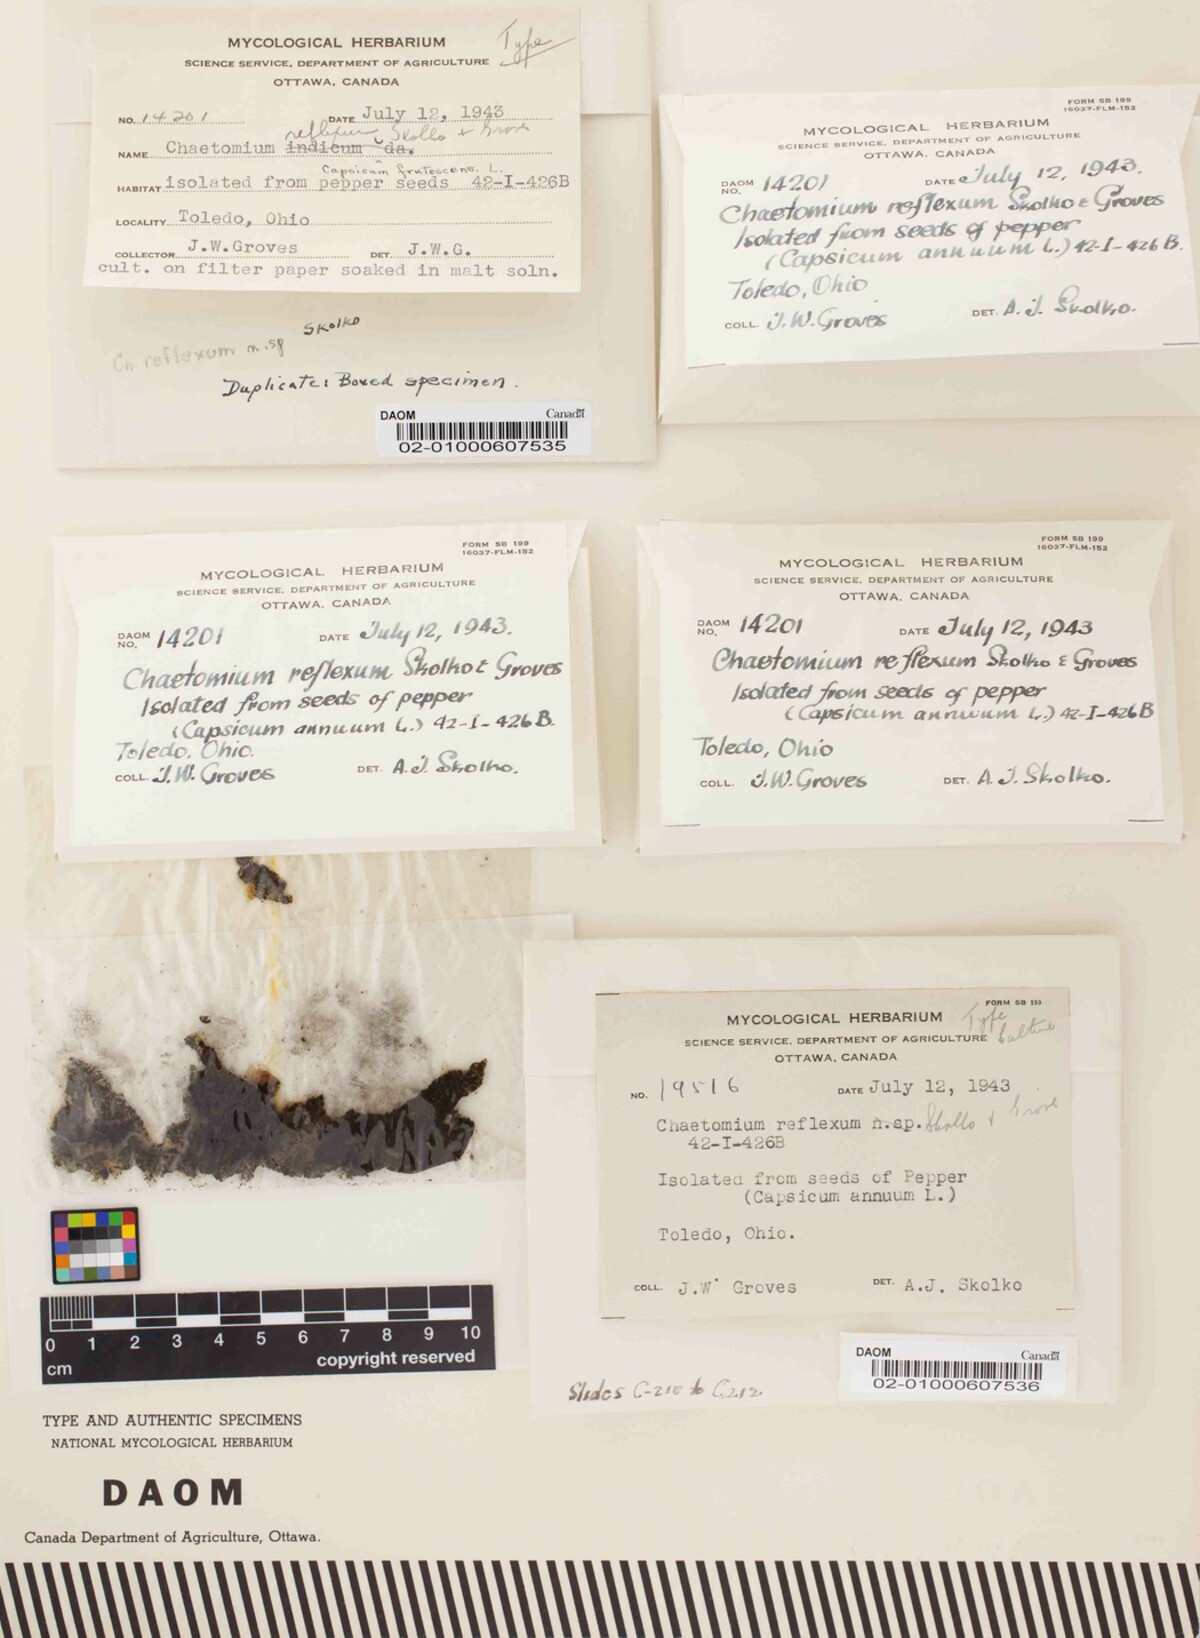 MYCOLOGICAL HERBARIUM
Type
SCIENCE SERVICE, DEPARTMENT OF AGRICULTURE
OTTAWA, CANADA
NO. 14201 DATE July 12, 1943
reflexum Skolko + Groves
NAME Chaetomium indicum da.
Capsicum frutescens. L.
HABITAT isolated from pepper seeds 42-I-426B
LOCALITY Toledo, Ohio
COLLECTOR J.W.Groves DET. J.W.G.
cult. on filter paper soaked in malt soln.
Ch. reflexum n.sp Skolko
Duplicate: Boxed specimen.
DAOM Canada
02-01000607535
FORM SB 199
16037-FLM-152
MYCOLOGICAL HERBARIUM
SCIENCE SERVICE, DEPARTMENT OF AGRICULTURE
OTTAWA, CANADA
DAOM NO. 14201 DATE July 12, 1943.
Chaetomium reflexum Skolko & Groves
Isolated from seeds of pepper
(Capsicum annuum L.) 42-I-426 B.
Toledo, Ohio
COLL. J.W. Groves DET. A.J. Skolko.
FORM SB 199
16037-FLM-152
MYCOLOGICAL HERBARIUM
SCIENCE SERVICE, DEPARTMENT OF AGRICULTURE
OTTAWA, CANADA
DAOM NO. 14201 DATE July 12, 1943.
Chaetomium reflexum Skolko & Groves
Isolated from seeds of pepper
(Capsicum annuum L.) 42-I-426 B.
Toledo, Ohio.
COLL. J.W. Groves DET. A.J. Skolko.
FORM SB 199
16037-FLM-152
MYCOLOGICAL HERBARIUM
SCIENCE SERVICE, DEPARTMENT OF AGRICULTURE
OTTAWA, CANADA
DAOM NO. 14201 DATE July 12, 1943
Chaetomium reflexum Skolko & Groves
Isolated from seeds of pepper
(Capsicum annuum L.) 42-I-426 B
Toledo, Ohio
COLL. J.W. Groves DET. A.J. Skolko.
FORM SB 199
MYCOLOGICAL HERBARIUM Type
SCIENCE SERVICE, DEPARTMENT OF AGRICULTURE culture
OTTAWA, CANADA
NO. 19516 DATE July 12, 1943
Chaetomium reflexum n.sp. Skolko + Groves
42-I-426B
Isolated from seeds of Pepper
(Capsicum annuum L.)
Toledo, Ohio.
COLL. J.W. Groves DET. A.J. Skolko
DAOM Canada
02-01000607536
Slides C-210 to C212
0 1 2 3 4 5 6 7 8 9 10
cm copyright reserved
TYPE AND AUTHENTIC SPECIMENS
NATIONAL MYCOLOGICAL HERBARIUM
DAOM
Canada Department of Agriculture, Ottawa.